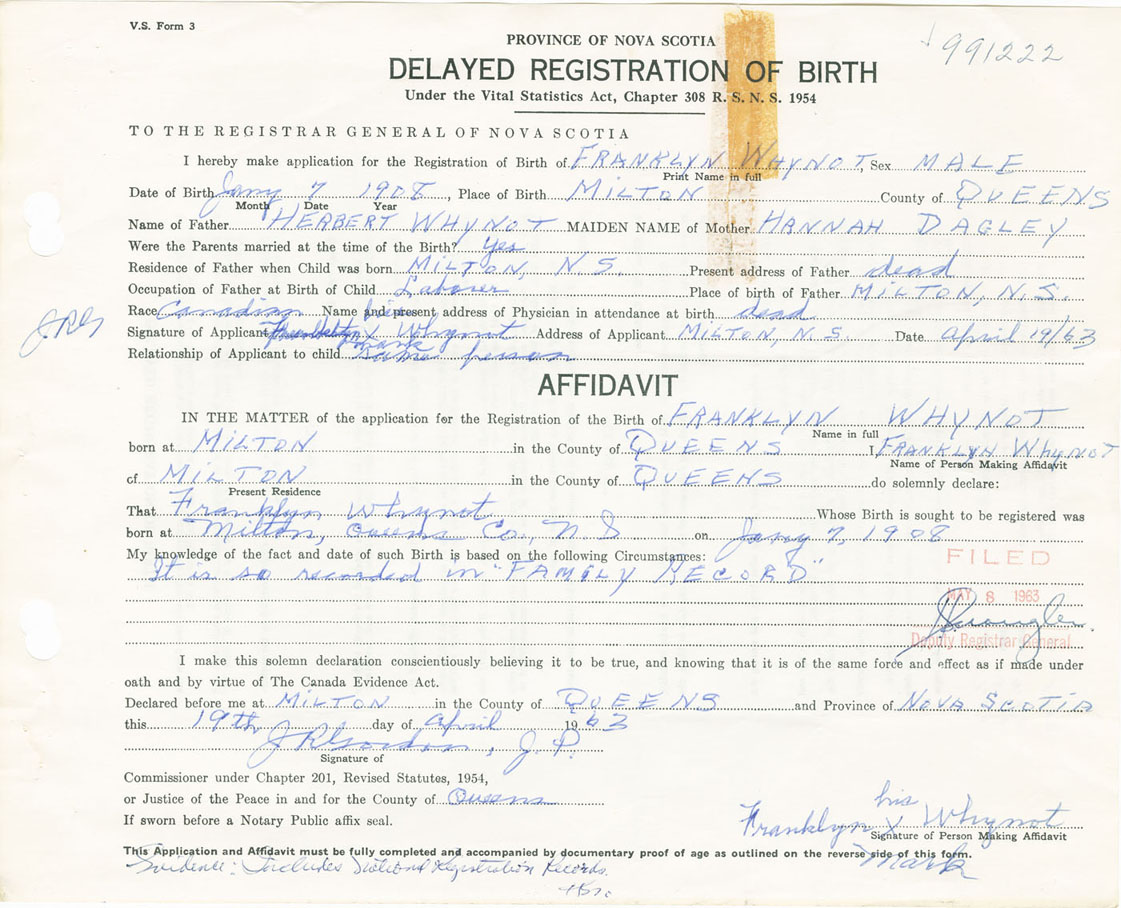 V.S. Form 3
991222
PROVINCE OF NOVA SCOTIA
DELAYED REGISTRATION OF BIRTH
Under the Vital Statistics Act, Chapter 308 R. S. N. S. 1954
TO THE REGISTRAR GENERAL OF NOVA SCOTIA
I hereby make application for the Registration of Birth of FRANKLYN WHYNOT, Sex MALE
Print Name in full
Date of Birth Jany 7 1908, Place of Birth MILTON County of QUEENS
Month Date Year
Name of Father HERBERT WHYNOT MAIDEN NAME of Mother HANNAH DAGLEY
Were the Parents married at the time of the Birth? Yes
Residence of Father when Child was born MILTON, N.S. Present address of Father dead
Occupation of Father at Birth of Child Laborer Place of birth of Father MILTON, N.S.
Race Canadian Name and present address of Physician in attendance at birth dead
his
JRG Signature of Applicant Franklyn X Whynot Address of Applicant MILTON, N.S. Date April 19/63
mark
Relationship of Applicant to child same person
AFFIDAVIT
IN THE MATTER of the application for the Registration of the Birth of FRANKLYN WHYNOT
Name in full
born at MILTON in the County of QUEENS I, FRANKLYN WhyNOT
Name of Person Making Affidavit
of MILTON in the County of QUEENS do solemnly declare:
Present Residence
That Franklyn Whynot Whose Birth is sought to be registered was
born at Milton, Queens Co., N S on Jany 7, 1908
My knowledge of the fact and date of such Birth is based on the following Circumstances:
It is so recorded in "FAMILY RECORD"
FILED
MAY 8 1963
Deputy Registrar General
I make this solemn declaration conscientiously believing it to be true, and knowing that it is of the same force and effect as if made under
oath and by virtue of The Canada Evidence Act.
Declared before me at MILTON in the County of QUEENS and Province of NOVA SCOTIA
this 19th day of April 1963
J R Gordon, J.P.
Signature of
Commissioner under Chapter 201, Revised Statutes, 1954,
or Justice of the Peace in and for the County of Queens
If sworn before a Notary Public affix seal.
his
Franklyn X Whynot
Signature of Person Making Affidavit
mark
This Application and Affidavit must be fully completed and accompanied by documentary proof of age as outlined on the reverse side of this form.
Evidence: Includes National Registration Records.